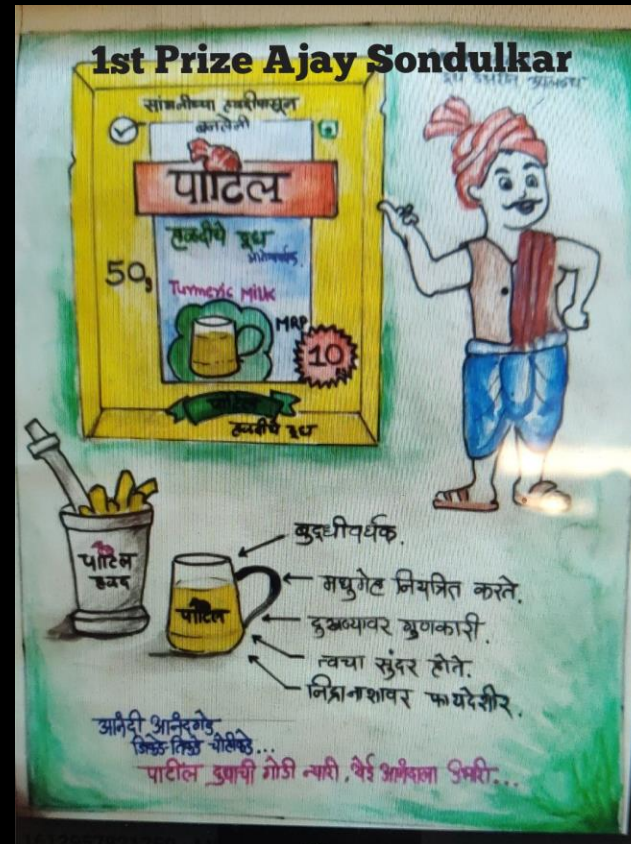 1st Prize Ajay Sondulkar
सांगलीच्या हळदीपासून
बनलेली
पाटिल
हळदीचे दूध
50g
Turmeric Milk
MRP
10
पाटिल
हळदीचे दूध
पाटिल
हळद
पाटिल
बुद्धीवर्धक.
मधुमेह नियंत्रित करते.
दुखण्यावर गुणकारी.
त्वचा सुंदर होते.
निद्रानाशावर फायदेशीर.
आनंदी आनंदगडे
जिकडे तिकडे चोहीकडे...
पाटील दुधाची गोडी न्यारी, येई आनंदाला उभारी...